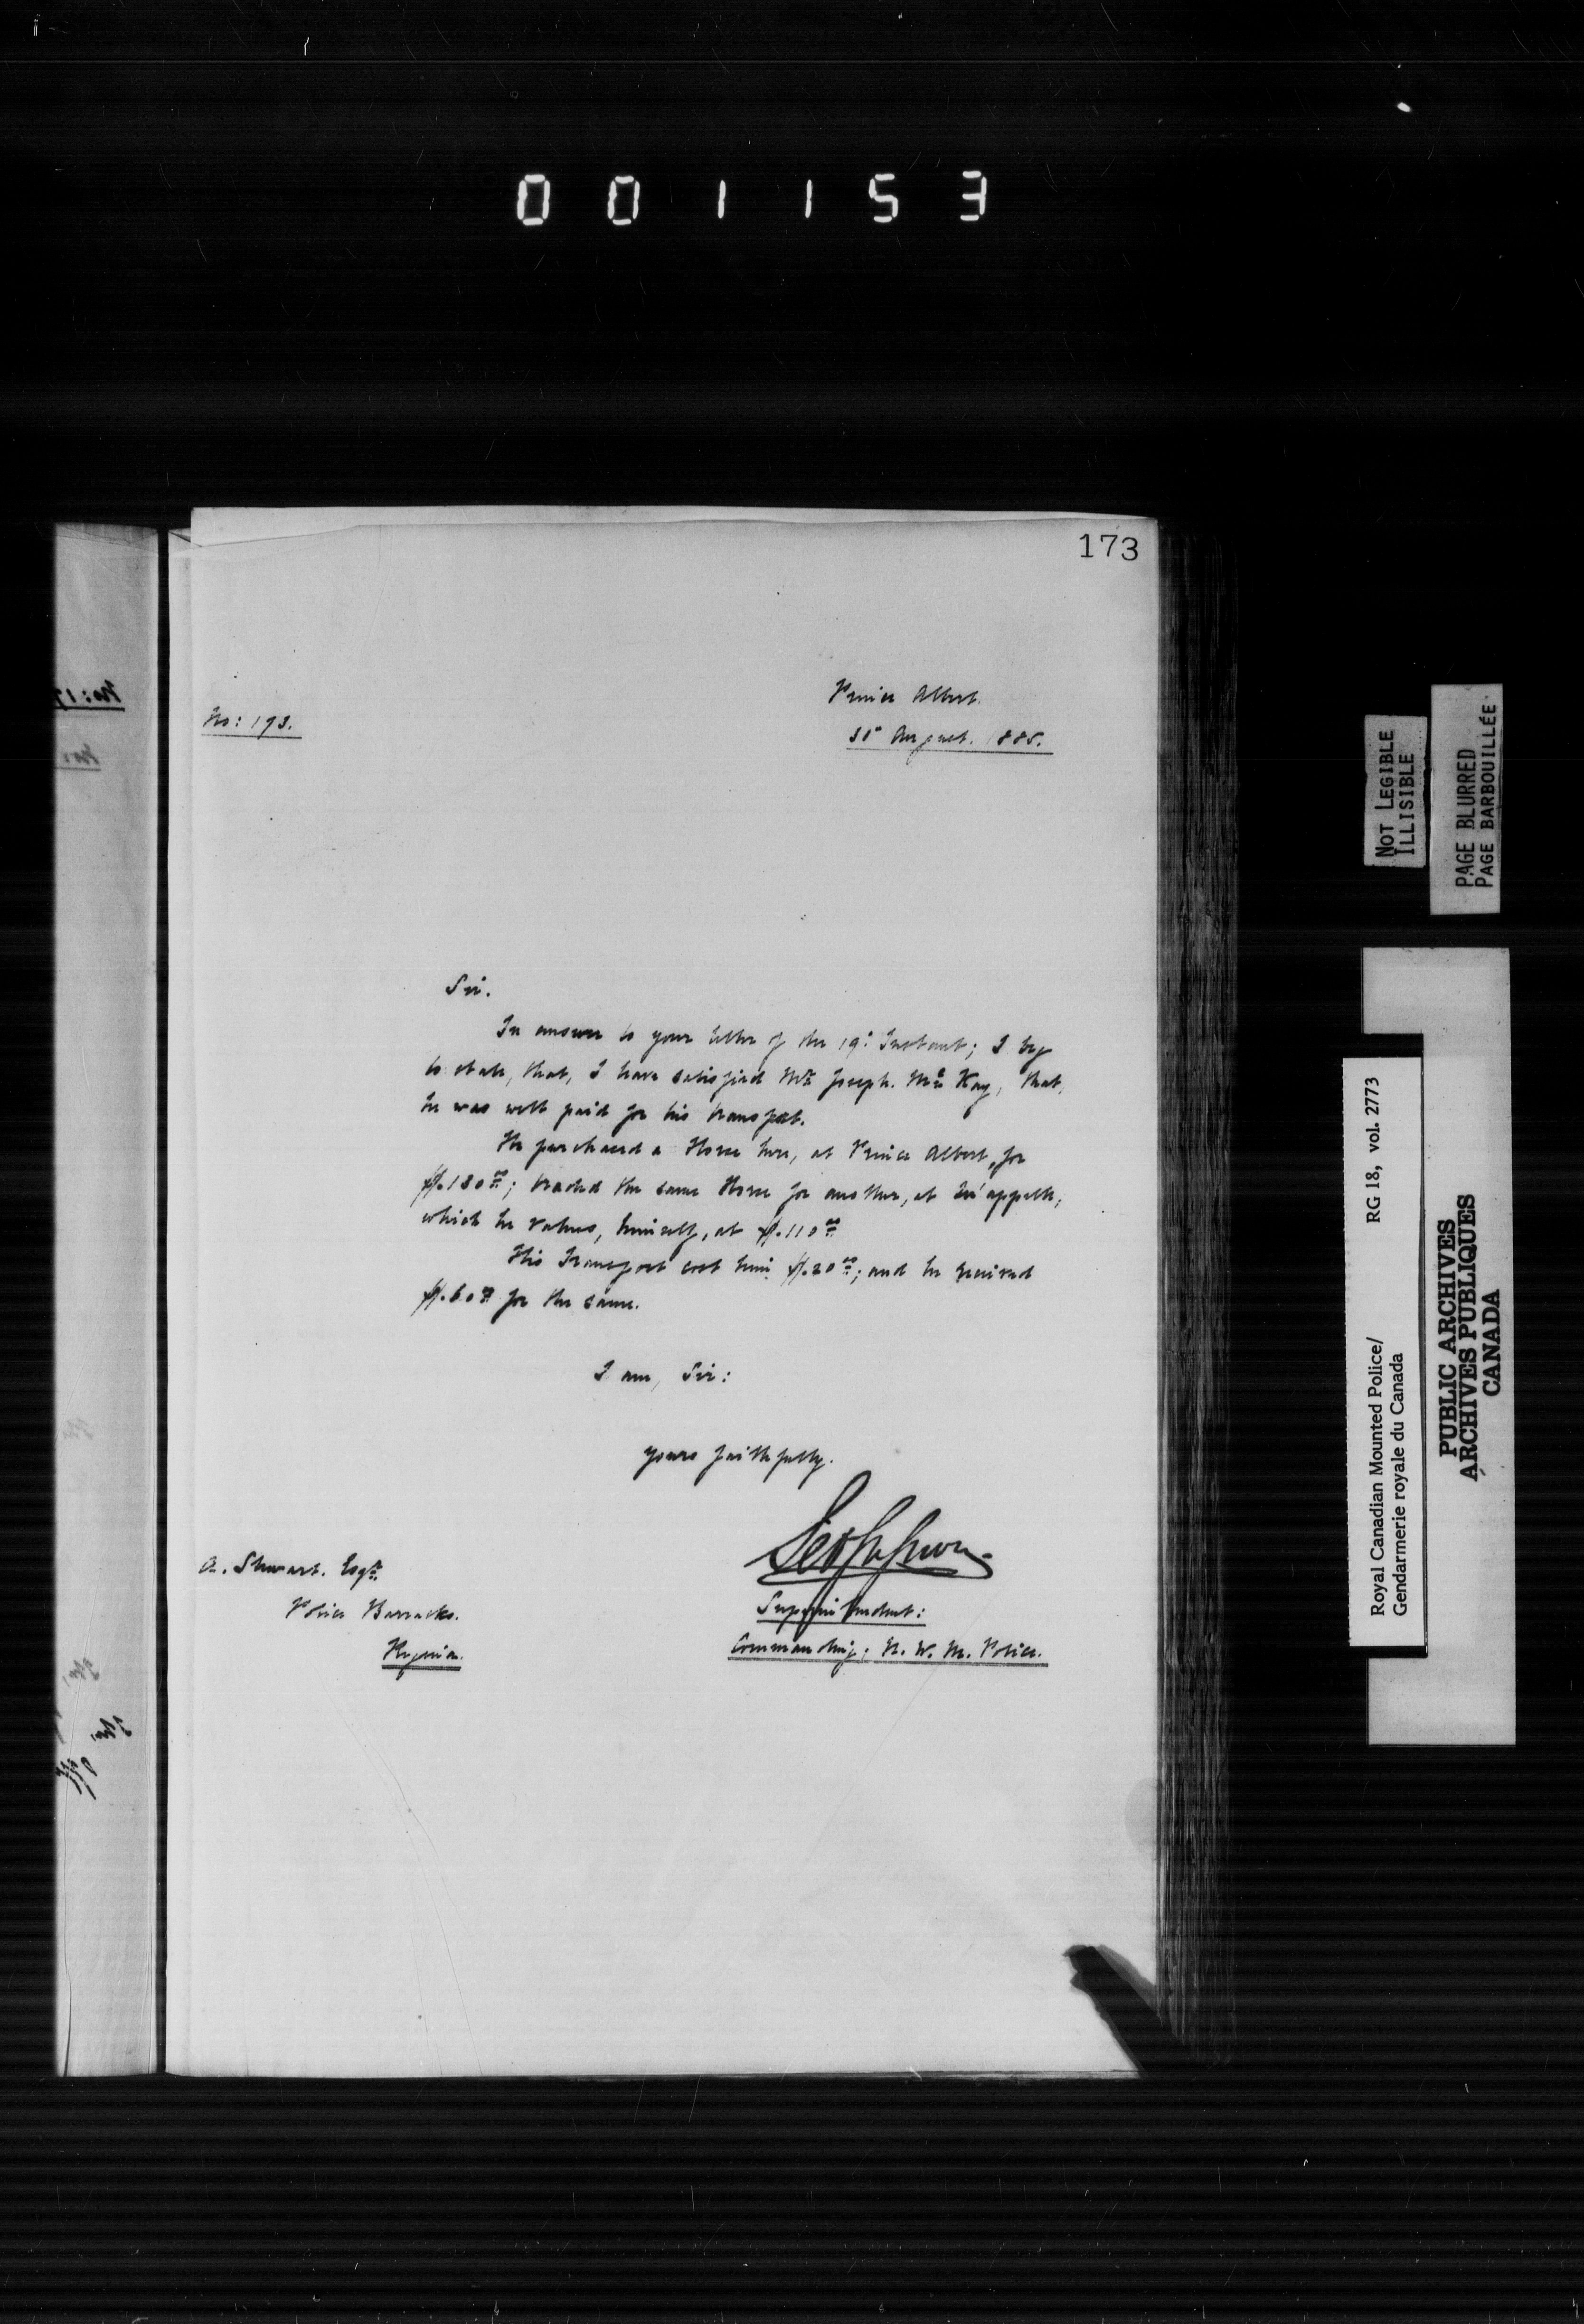 001153
173
Prince Albert.
No: 173.
31° August. 1885.
Sir.
In answer to your letter of the 19: Instant; I beg
to state, that, I have satisfied Mr. Joseph. Mc Kay, that,
he was well paid for his transport.
He purchased a Horse here, at Prince Albert, for
$.130.00; traded the same Horse for another, at Qu'appelle,
which he values, himself, at $.110.00
His Transport cost him $.20.00; and he received
$.60.00 for the same.
I am, Sir:
yours faithfully.
A. Stewart. Esqr.
Police Barracks.
Regina.
Superintendent:
Commanding; N. W. M. Police.
NOT LEGIBLE
ILLISIBLE
PAGE BLURRED
PAGE BARBOUILLÉE
Royal Canadian Mounted Police/
Gendarmerie royale du Canada
RG 18, vol. 2773
PUBLIC ARCHIVES
ARCHIVES PUBLIQUES
CANADA